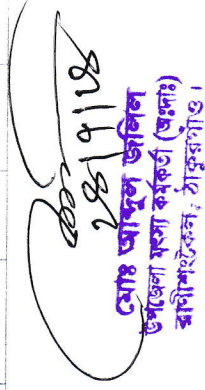 ২৪|৭|২৪
মোঃ আব্দুল জলিল
উপজেলা মৎস্য কর্মকর্তা (অঃদাঃ)
রাণীশংকৈল, ঠাকুরগাঁও।